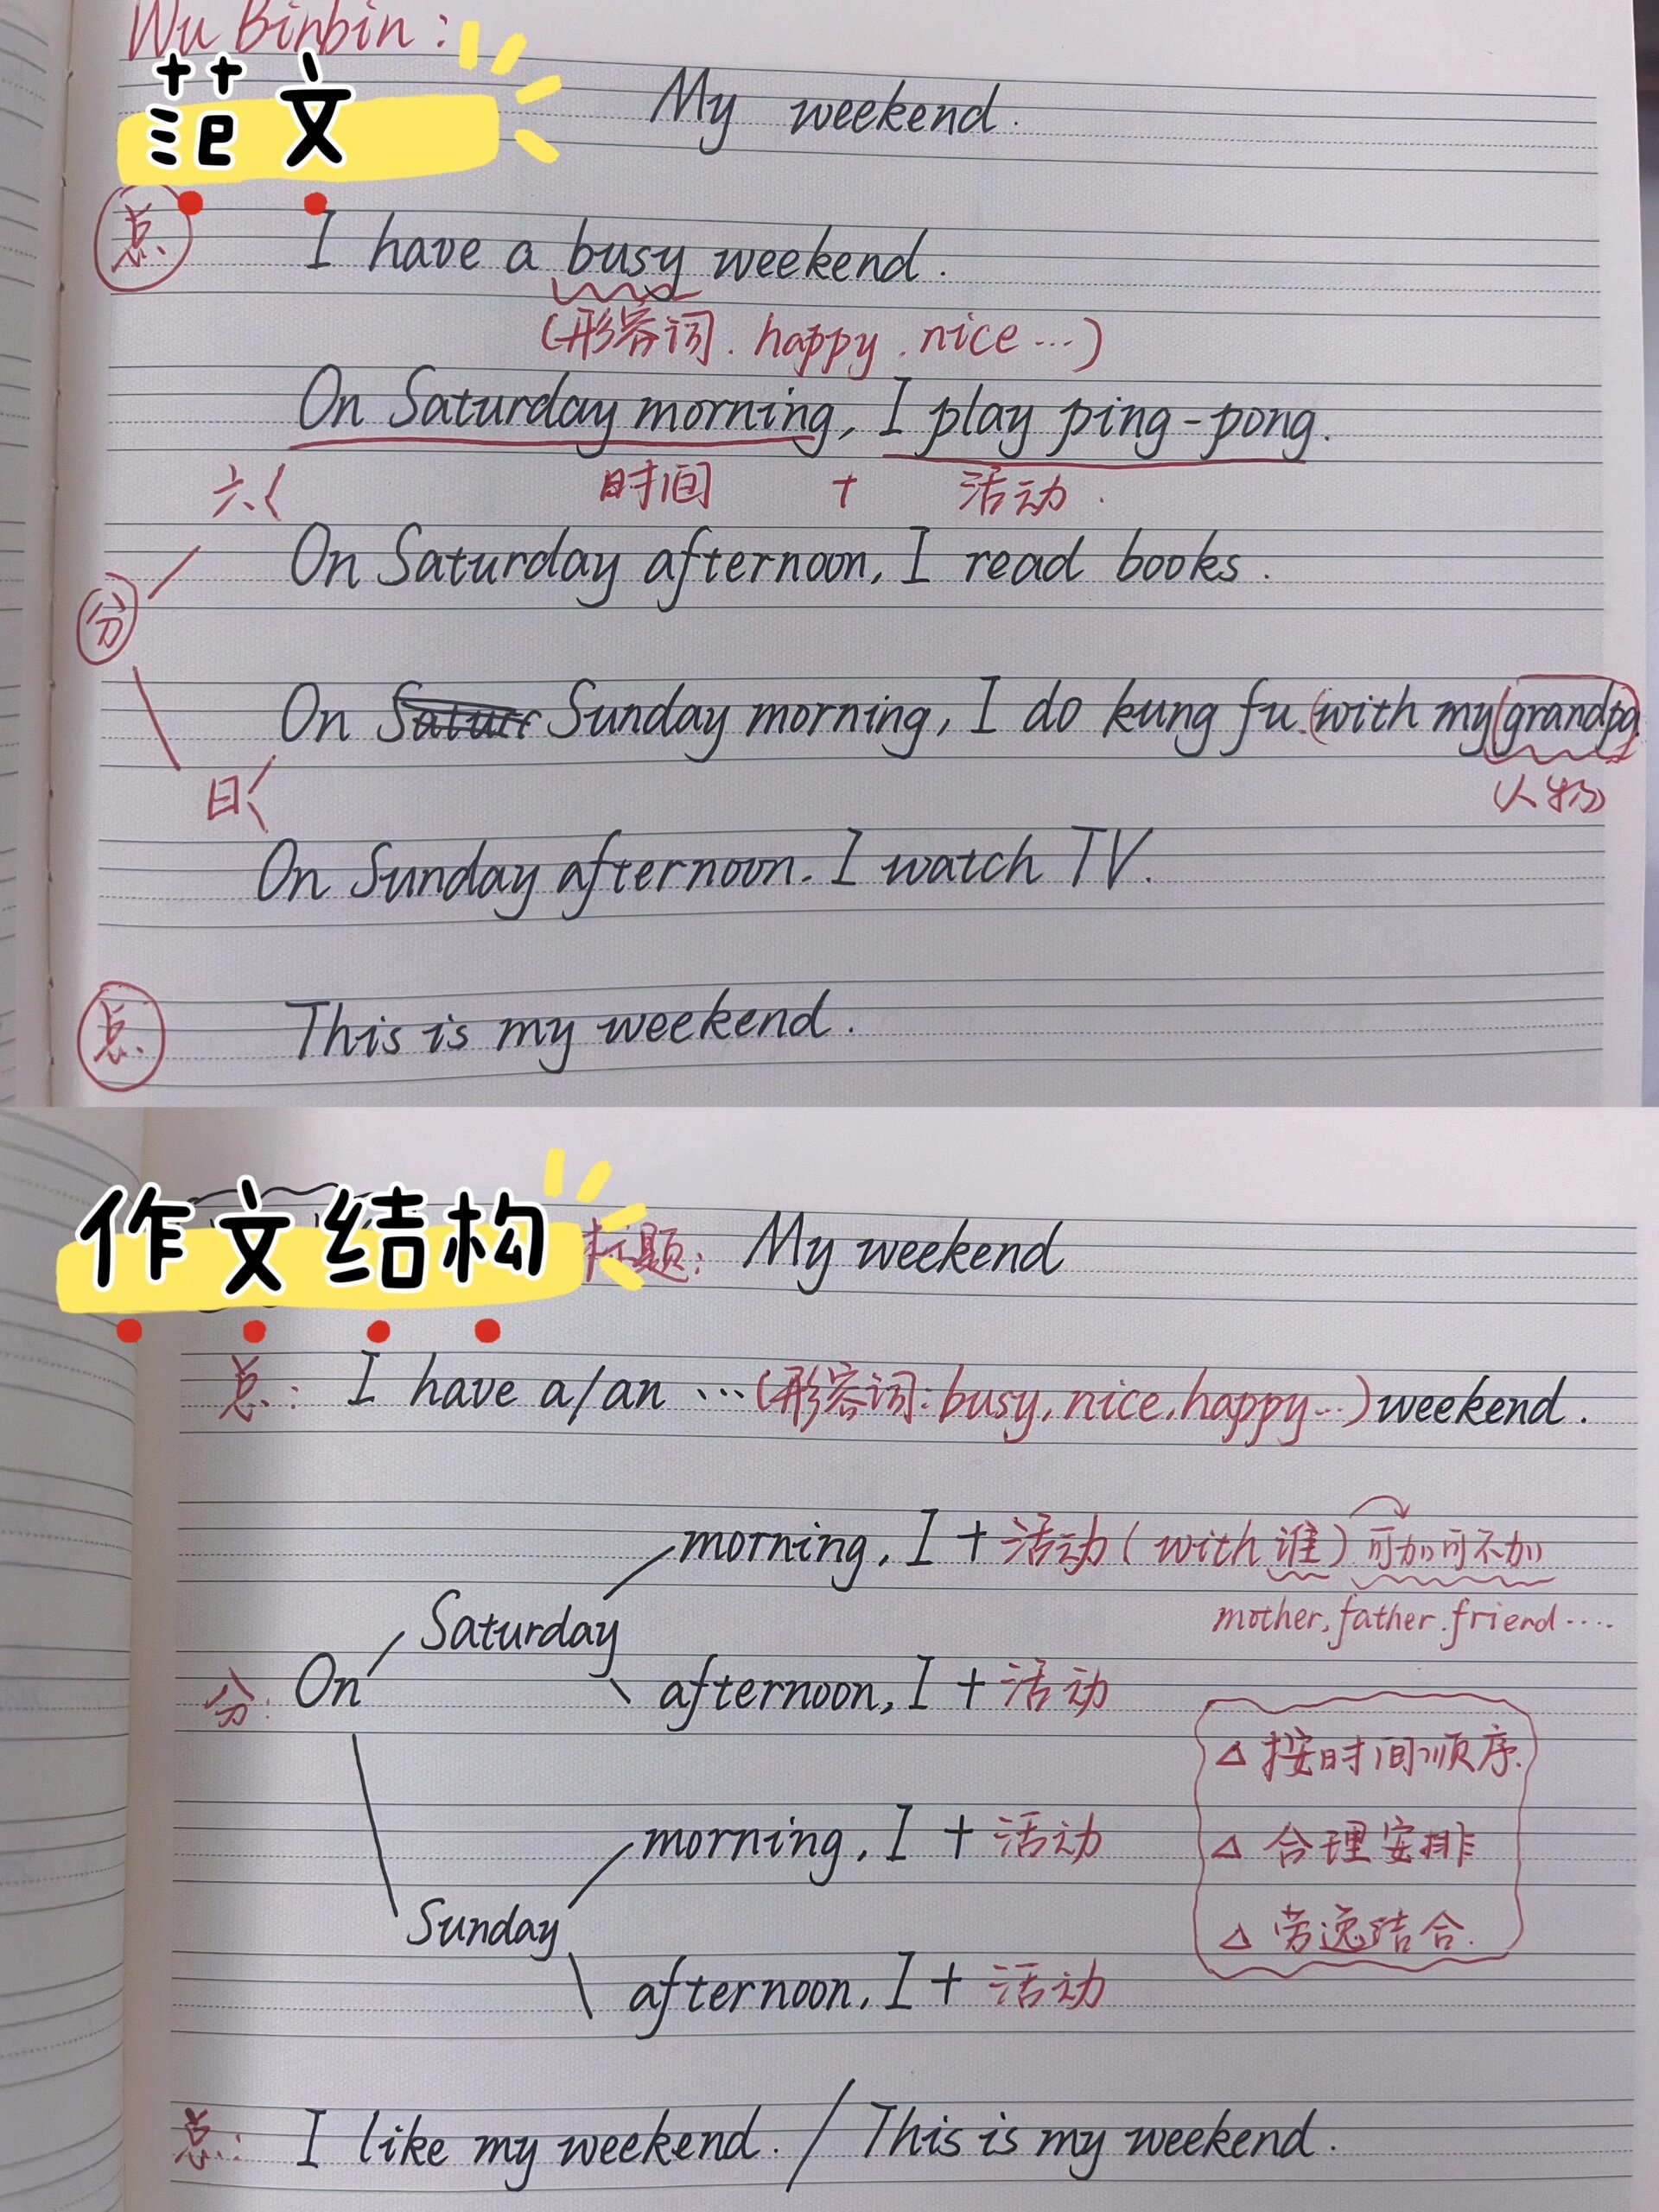 Wu Binbin:
范文
My weekend.
总
I have a busy weekend.
(形容词. happy. nice…)
On Saturday morning, I play ping-pong.
六
时间 + 活动.
On Saturday afternoon, I read books.
分
On Sunday morning, I do kung fu (with my grandpa
人物
日
On Sunday afternoon. I watch TV.
总
This is my weekend.
作文结构
标题: My weekend
总: I have a/an …(形容词: busy, nice, happy…) weekend.
morning, I + 活动 (with 谁) 可加可不加
mother, father. friend ····
Saturday
分: On
afternoon, I + 活动
△ 按时间顺序.
morning, I + 活动
△ 合理安排
Sunday
△ 劳逸结合.
afternoon, I + 活动
总: I like my weekend. / This is my weekend.